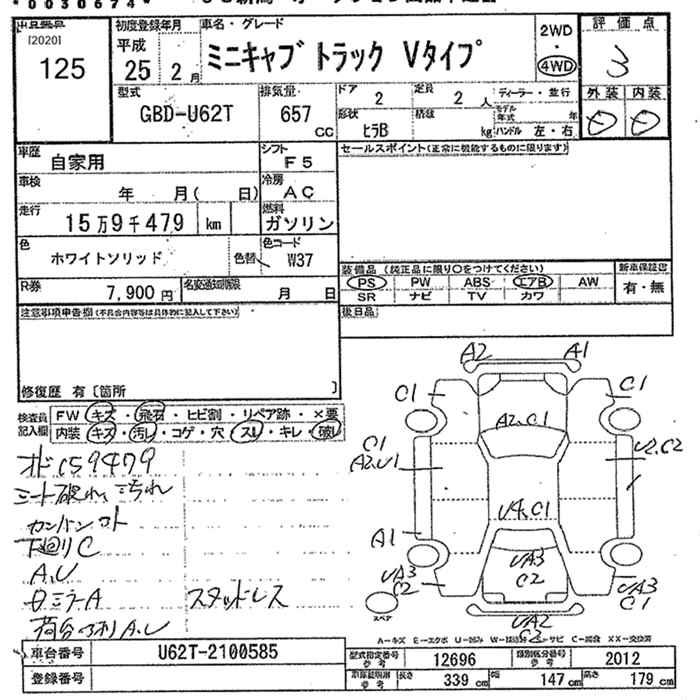 *0030674*
出品番号
[2020]
125
初度登録年月
平成
25 2月
車名・グレード
ミニキャブトラック Vタイプ
2WD
・
4WD
評価点
3
外装 内装
型式
GBD-U62T
排気量
657
cc
ドア
2
定員
2人
ディーラー・並行
モデル年式 年
形状
ヒラB
積載
kg
ハンドル 左・右
車歴
自家用
シフト
F5
セールスポイント(正常に機能するものに限ります)
車検
年 月( 日)
冷房
AC
走行
15万9千479 km
燃料
ガソリン
色
ホワイトソリッド
色替
色コード
W37
装備品 (純正品に限り○をつけてください)
新車保証書
PS PW ABS エアB AW
SR ナビ TV カワ
有・無
R券
7,900円
名変通知期限
月 日
後日品
注意事項申告欄(不具合内容等は具体的に記入して下さい)
修復歴 有〔箇所 〕
検査員
記入欄
FW キズ・飛石・ヒビ割・リペア跡・×要
内装・キズ・汚れ・コゲ・穴・スレ・キレ・破れ
オド159479
シート破れ、汚れ
下廻りC
A.U
スタッドレス
A2 A1
C1 C1
A2,C1
C1
A2,U1
U2,C2
U4,C1
A1
UA3
C2
UA3
C2
UA3
C1
UA2
C2
スペア
A-キズ E-エクボ U-凹み W-補修跡 S-サビ C-腐食 XX-交換済
車台番号
U62T-2100585
型式指定番号
参考
12696
類別区分番号
参考
2012
登録番号
長さ 339cm 幅 147cm 高さ 179cm